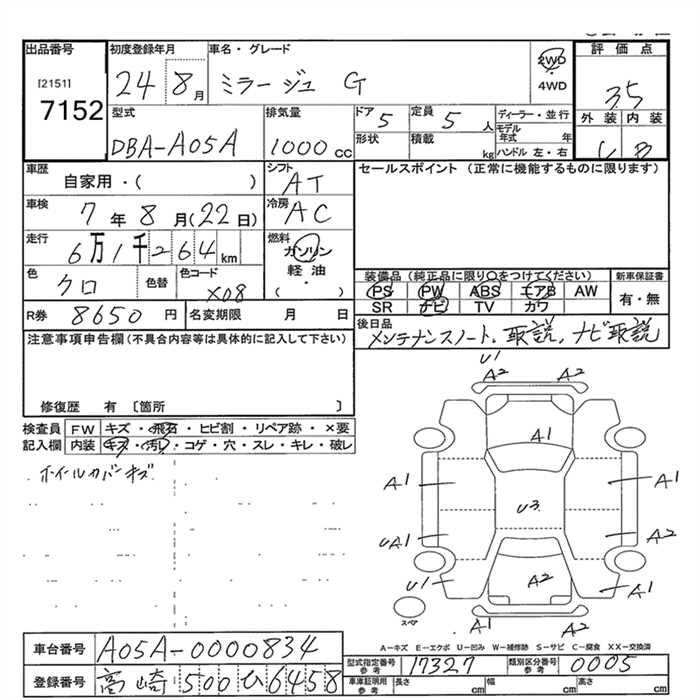 出品番号 初度登録年月 車名・グレード 評価点
[2151] 7152 24 8月 ミラージュ G 2WD ・ 4WD 3.5
型式 排気量 ドア 定員 ディーラー・並行 外装 内装
DBA-A05A 1000cc 5 5人 モデル年式 年 B
形状 積載 kg ハンドル 左・右
車歴 シフト セールスポイント(正常に機能するものに限ります)
自家用・( ) AT
車検 冷房
7年8月(22日) AC
走行 燃料
6万1千264km ガソリン
軽油
・
( )
色 色替 色コード 装備品(純正品に限り○をつけてください) 新車保証書
クロ X08 PS PW ABS エアB AW 有・無
SR ナビ TV カワ
R券 8650円 名変期限 月 日 後日品
メンテナンスノート、取説、ナビ取説
注意事項申告欄(不具合内容等は具体的に記入して下さい)
修復歴 有〔箇所 〕
検査員 FW キズ・飛石・ヒビ割・リペア跡・×要
記入欄 内装 キズ・汚レ・コゲ・穴・スレ・キレ・破レ
ホイールカバーキズ
U1
A2 A2
A1
A1 A1
U3
UA1 A2
U1 A2 A1
スペア
A1 A2
A-キズ E-エクボ U-凹み W-補修跡 S-サビ C-腐食 XX-交換済
車台番号 A05A-0000834
型式指定番号 参考 17327 類別区分番号 参考 0005
登録番号 高崎 500 ひ 6458
車庫証明用 参考 長さ cm 幅 cm 高さ cm